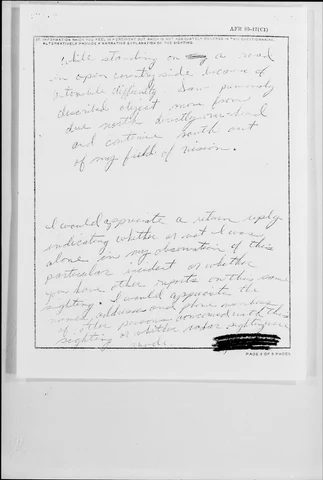 AFR 80-17(C1)
27. INFORMATION WHICH YOU FEEL IS PERTINENT BUT WHICH IS NOT ADEQUATELY COVERED IN THIS QUESTIONNAIRE.
ALTERNATIVELY PROVIDE A NARRATIVE EXPLANATION OF THE SIGHTING.
While standing on a road
in open country side, because of
automobile difficulty. Saw previously
described object move from
due north directly overhead
and continue south out
of my field of vision.
I would appreciate a return reply
indicating whether or not I was
alone in my observation of this
particular incident or whether
you have other reports on this same
sighting. I would appreciate the
names, addresses and phone numbers
of other persons concerned with this
sighting or whether radar sightings were
made.
PAGE 5 OF 5 PAGES